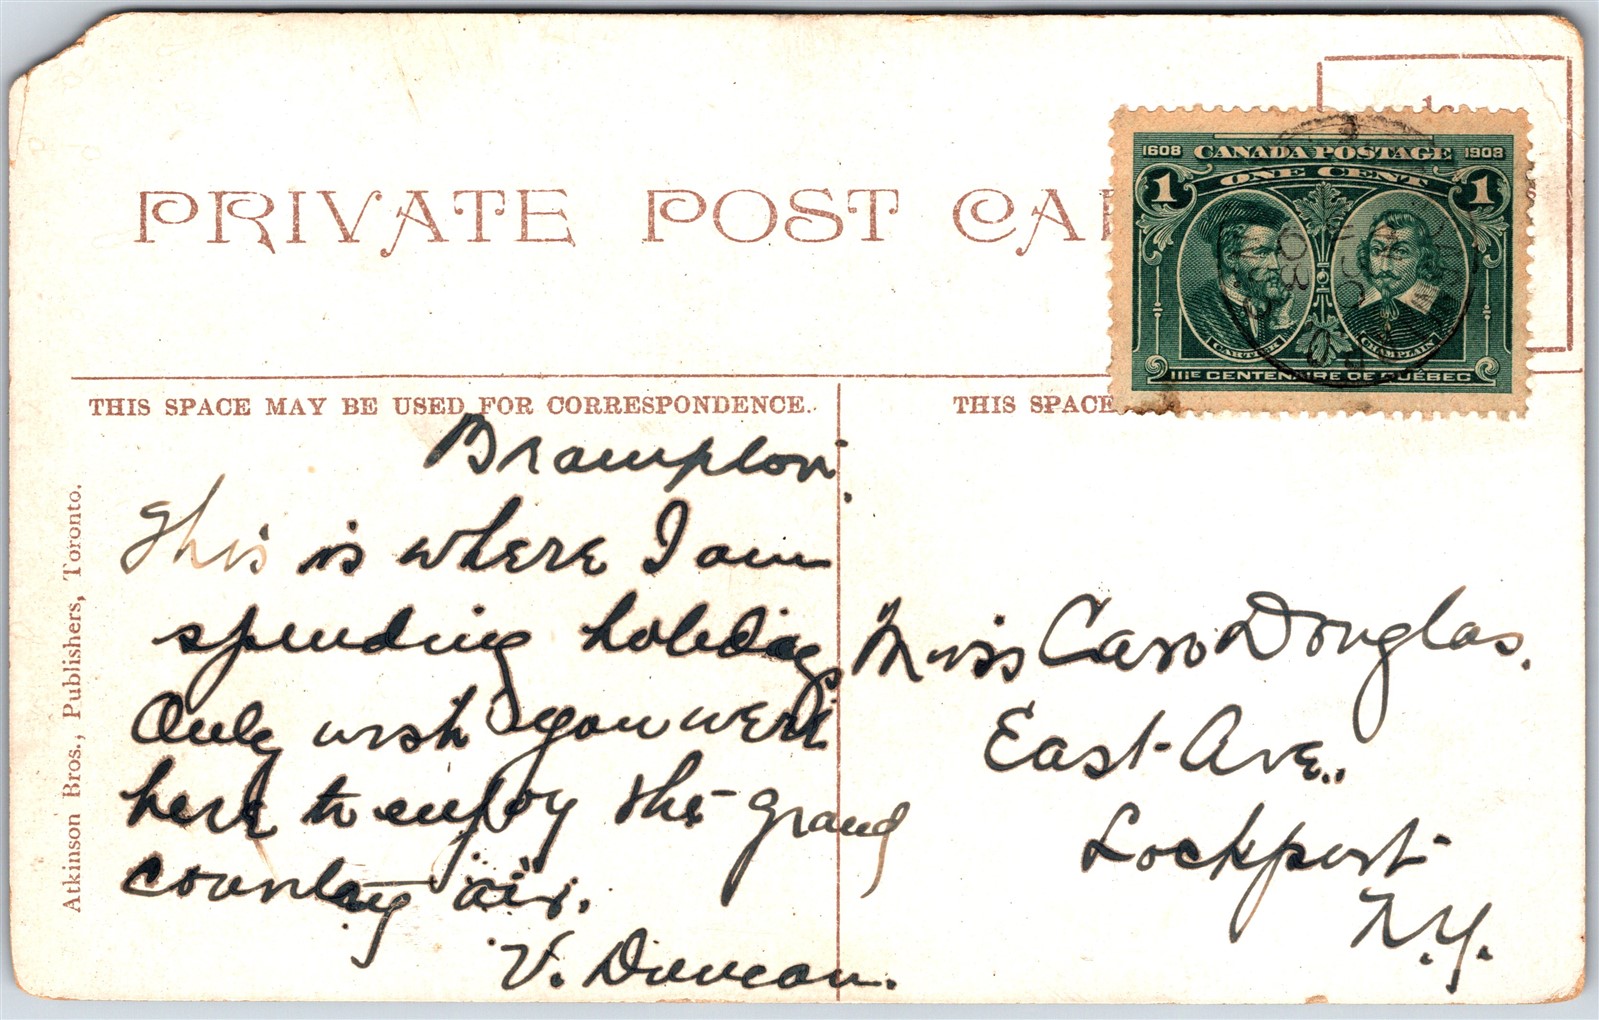 PRIVATE POST CA
1608 CANADA POSTAGE 1908
1 ONE CENT 1
CARTIER CHAMPLAIN
IIIE CENTENAIRE DE QUÉBEC
THIS SPACE MAY BE USED FOR CORRESPONDENCE.
THIS SPACE
Brampton.
This is where I am
spending holidays
Only wish you were
here to enjoy the grand
country air.
V. Duncan.
Miss Caro Douglas.
East Ave.,
Lockport
N.Y.
Atkinson Bros., Publishers, Toronto.